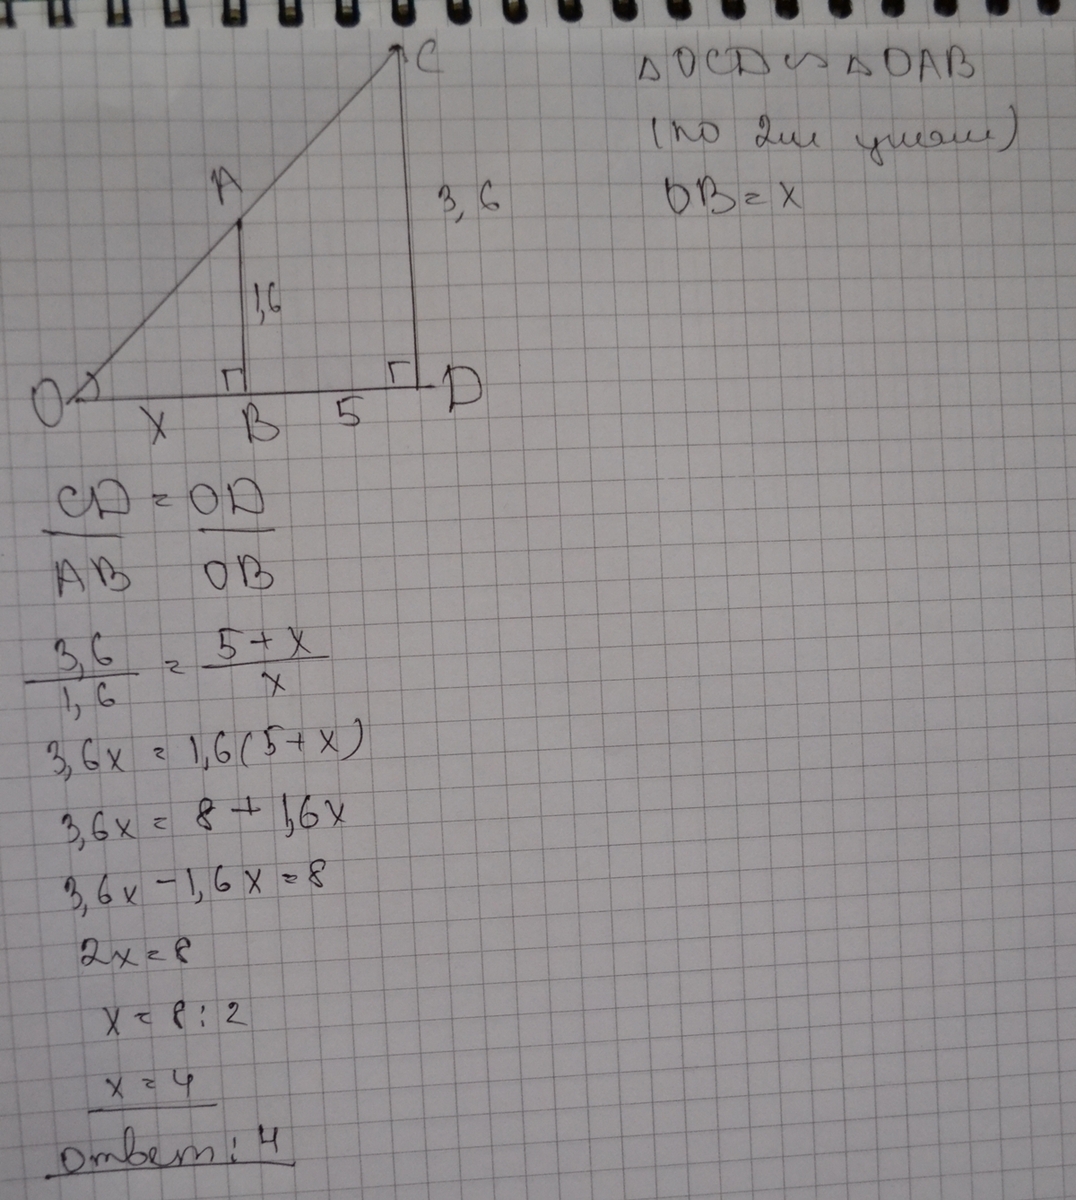 C
△OCD ∽ △OAB
(по 2м углам)
A
3,6
OB = x
1,6
O
x
B
5
D
CD = OD
AB OB
3,6 = 5 + x
1,6 x
3,6x = 1,6(5 + x)
3,6x = 8 + 1,6x
3,6x - 1,6x = 8
2x = 8
x = 8 : 2
x = 4
ответ: 4